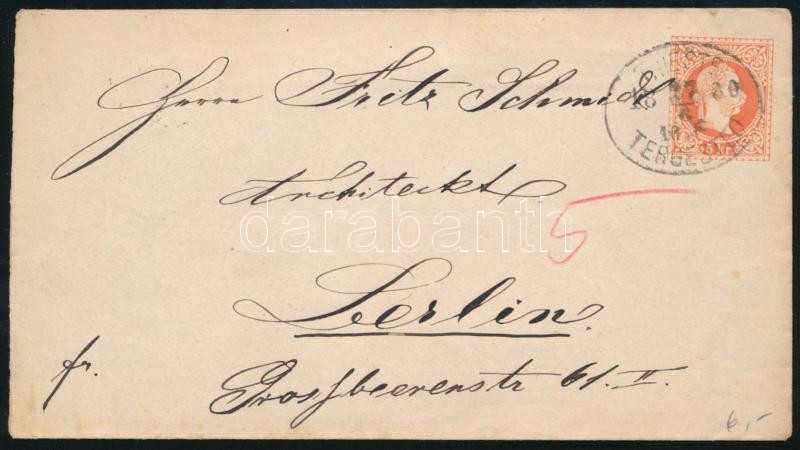 Herrn Fritz Schmidt
Architeckt
5
Berlin.
Grossbeerenstr 61. II.
fr.
6,-
TERGESTEO
5 Kr.
darabanth